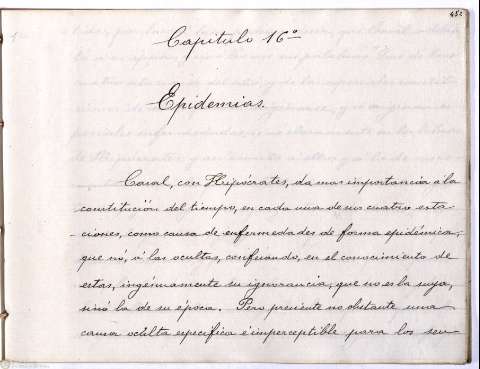 482
Capitulo 16º
Epidemias.
Casal, con Hipócrates, da mas importancia a la
constitución del tiempo, en cada una de sus cuatro esta-
ciones, como causa de enfermedades de forma epidémica,
que nó, á las ocultas, confesando, en el conocimiento de
estas, ingénuamente su ignorancia; que no es la suya,
sinó la de su época. Pero presiente no obstante una
causa oculta especifica é imperceptible para los sen-